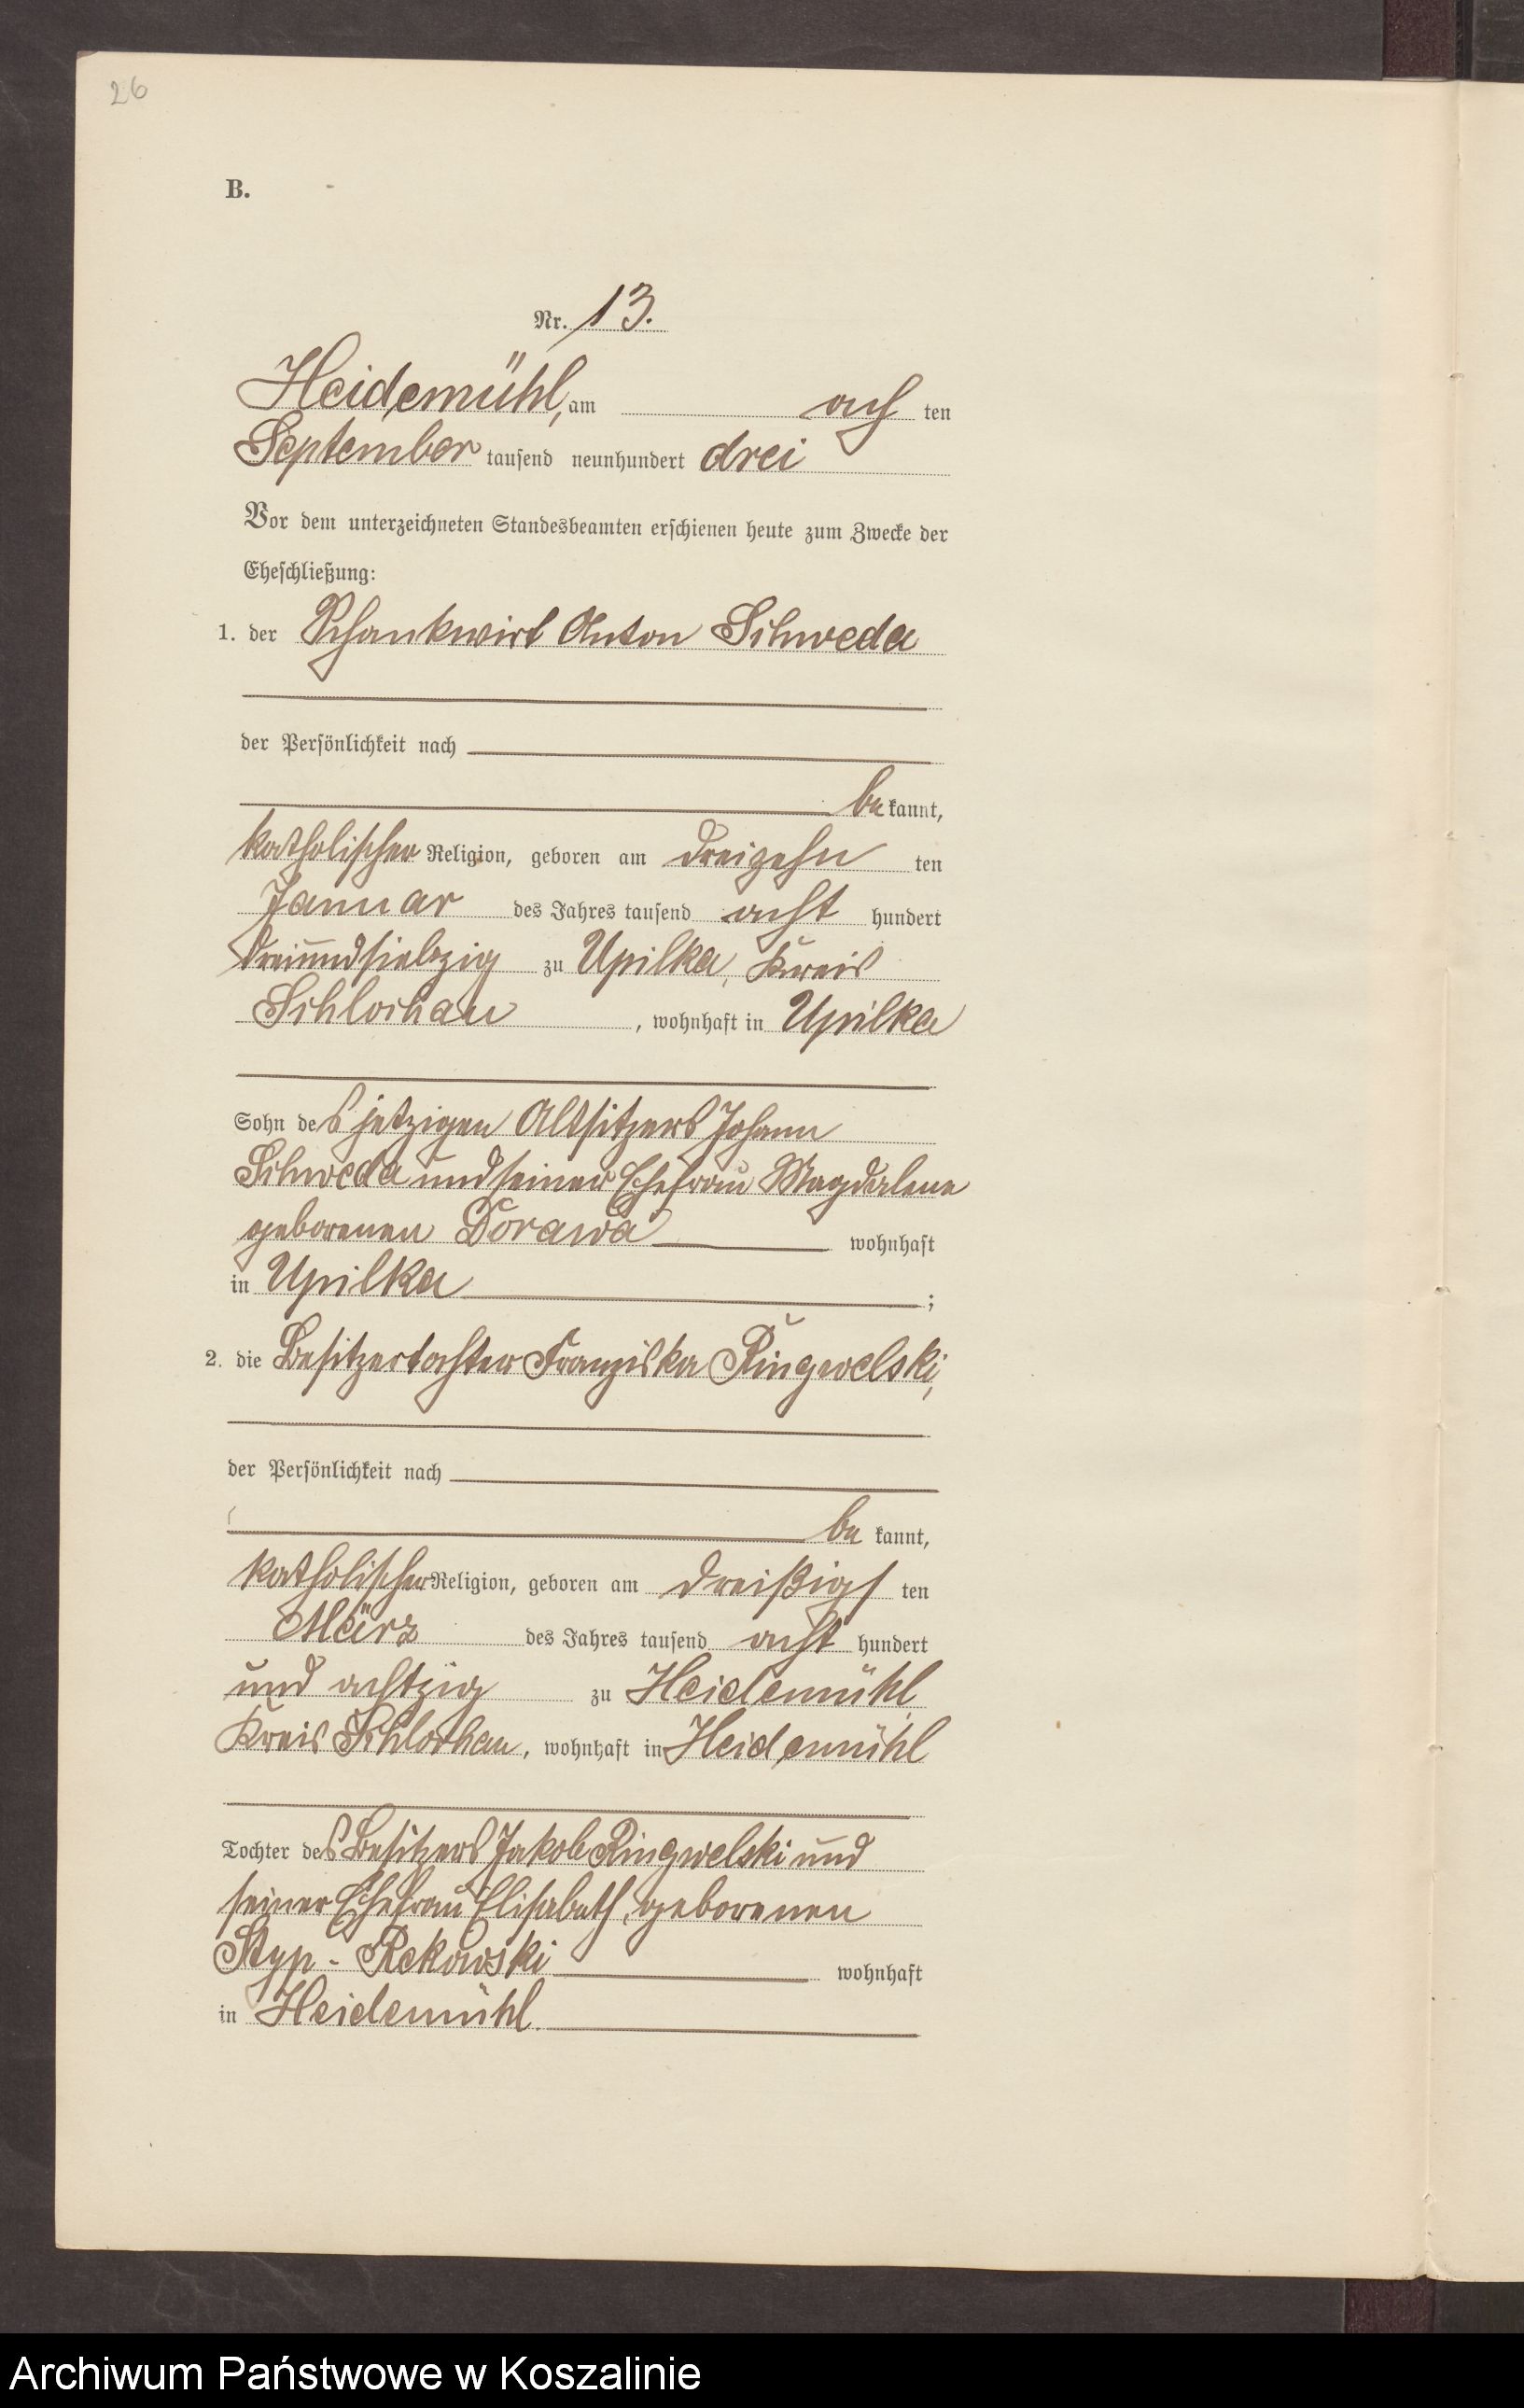 26
B.
Nr. 13.
Heidemühl, am ach ten
September tausend neunhundert drei
Vor dem unterzeichneten Standesbeamten erschienen heute zum Zwecke der
Eheschließung:
1. der Schankwirt Anton Schweda
der Persönlichkeit nach
be kannt,
katholischer Religion, geboren am dreizehn ten
Januar des Jahres tausend acht hundert
dreiundsiebzig zu Upilka, Kreis
Schlochau, wohnhaft in Upilka
Sohn des jetzigen Altsitzers Johann
Schweda und seiner Ehefrau Magdalene
geborenen Dorawa wohnhaft
in Upilka ;
2. die Besitzertochter Franziska Ringwelski,
der Persönlichkeit nach
be kannt,
katholischer Religion, geboren am dreißigs ten
März des Jahres tausend acht hundert
und achtzig zu Heidemühl,
Kreis Schlochau, wohnhaft in Heidemühl
Tochter des Besitzers Jakob Ringwelski und
seiner Ehefrau Elisabeth, geborenen
Styp-Rekowski wohnhaft
in Heidemühl.
Archiwum Państwowe w Koszalinie